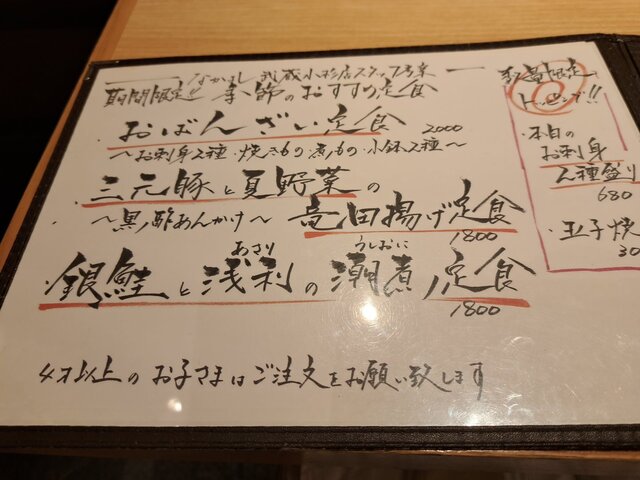 なかよし 武蔵小杉店スタッフ考案
期間限定!! 季節のおすすめ定食
おばんざい定食 2000
～お刺身2種・焼きもの・煮もの・小鉢2種～
三元豚と夏野菜の
～黒酢あんかけ～ 竜田揚げ定食
1800
あさり うしおに
銀鮭と浅利の潮煮定食
1800
4才以上のお子さまはご注文をお願い致します
数量限定
トッピング!!
・本日の
お刺身
2種盛り
680
・玉子焼
30